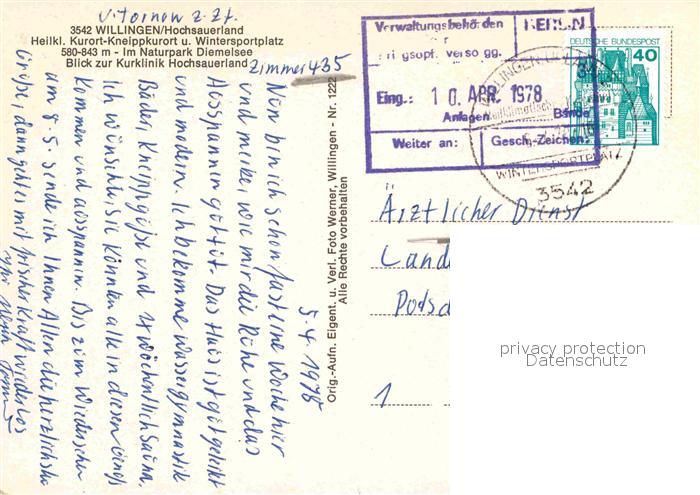 v. Tornow z. Zt.
3542 WILLINGEN/Hochsauerland
Heilkl. Kurort-Kneippkurort u. Wintersportplatz
580-843 m - Im Naturpark Diemelsee
Blick zur Kurklinik Hochsauerland
Zimmer 435
5.4.1978
Nun bin ich schon fast eine Woche hier
und merke, wie mir die Ruhe und das
Ausspannen gut tut. Das Haus ist gut geleitet
und modern. Ich bekomme Wassergymnastik
Bäder, Kneippgüsse und 1x wöchentlich Sauna.
Ich wünschte, Sie könnten alle in diesen
kommen und ausspannen. Bis zum Wiedersehen
am 8.5. sende ich Ihnen Allen die herzlichsten
Grüße, dann geht es mit frischer Kraft wieder los
Ihre
Orig.-Aufn. Eigent. u. Verl. Foto Werner, Willingen - Nr. 1222
Alle Rechte vorbehalten
Verwaltungsbehörden
BERLIN
Eing.: 10. APR. 1978
Anlagen Bände
Weiter an: Gesch.-Zeichen:
DEUTSCHE BUNDESPOST
40
WINTERSPORTPLATZ
3542
Ärztlicher Dienst
1
privacy protection
Datenschutz